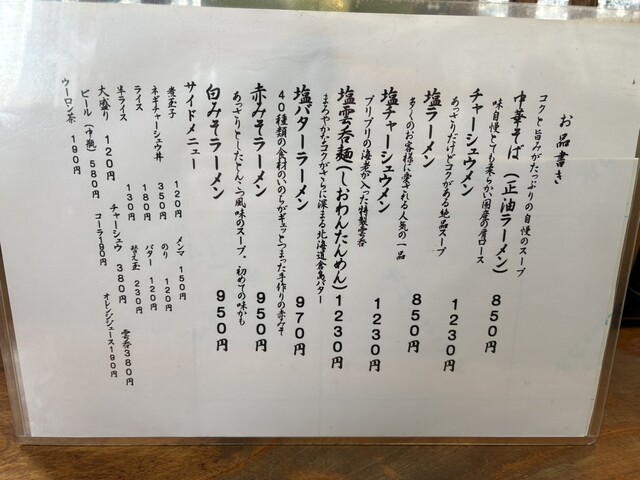 お品書き
コクと旨みがたっぷりの自慢のスープ
中華そば(正油ラーメン) 850円
味自慢とても柔らかい国産の肩ロース
チャーシュウメン 1230円
あっさりだけどコクがある絶品スープ
塩ラーメン 850円
多くのお客様に愛される人気の一品
塩チャーシュウメン 1230円
プリプリの海老が入った特製雲呑
塩雲呑麺(しおわんたんめん) 1230円
まろやかなコクがさらに深まる北海道倉島バター
塩バターラーメン 970円
40種類の食材のいのちがギュッとつまった手作りの赤みそ
赤みそラーメン 950円
あっさりとしたとんこつ風味のスープ、初めての味かも
白みそラーメン 950円
サイドメニュー
煮玉子 120円 メンマ 150円
ネギチャーシュウ丼 350円 のり 120円
ライス 180円 バター 120円
半ライス 130円 替え玉 230円 雲呑380円
大盛り 120円 チャーシュウ 380円
ビール(中瓶) 580円 コーラ190円 オレンジジュース190円
ウーロン茶 190円